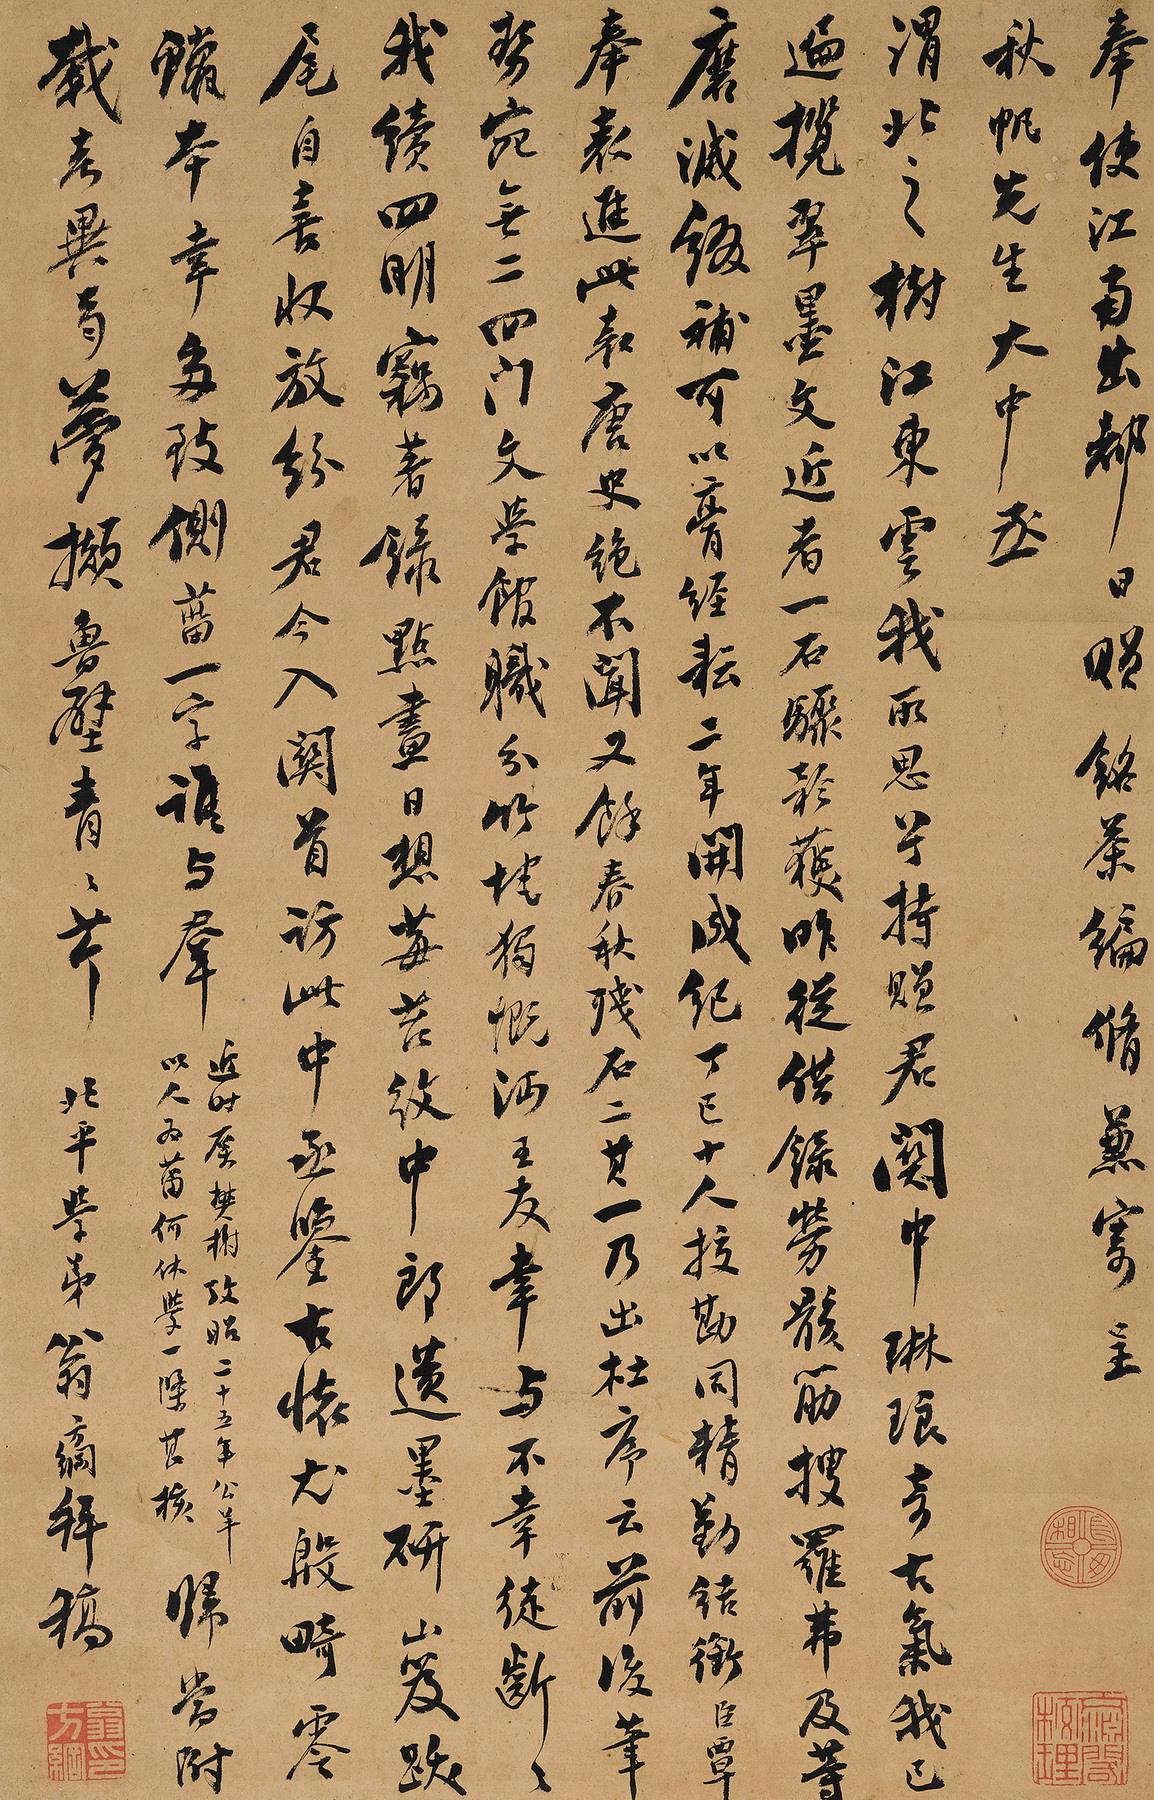 奉使江南出都日贈銘茶編脩兼寄呈
秋帆先生大中丞
渭北之樹江東雲我所思兮持贈君關中琳琅奇古氣我已
遍攬翠墨文近者一石驟難獲昨從借錄勞骸筋搜羅弗及等
磨滅綴補可以膏經耘二年開成紀丁巳十人挍勘同精勤結銜臣覃
奉表進此表唐史絕不聞又餘春秋殘石二其一乃出杜序云前後筆
勢宛無二四門文學館職分竹垞獨慨沔王友幸与不幸徒齗〻
我續四明竊著錄點畫日想莓苔紋中郎遺墨研山笈跋
尾自喜收放紛君今入關首訪此中丞鑒古懷尤殷畸零
鑴本幸多致側菑一字誰与群
近時厲樊榭攷昭二十五年公羊
以人為菑何休學一條甚核
歸當附
載考異高夢擬魯壁青〻芹
北平學弟翁方綱拜稿
翁方綱印